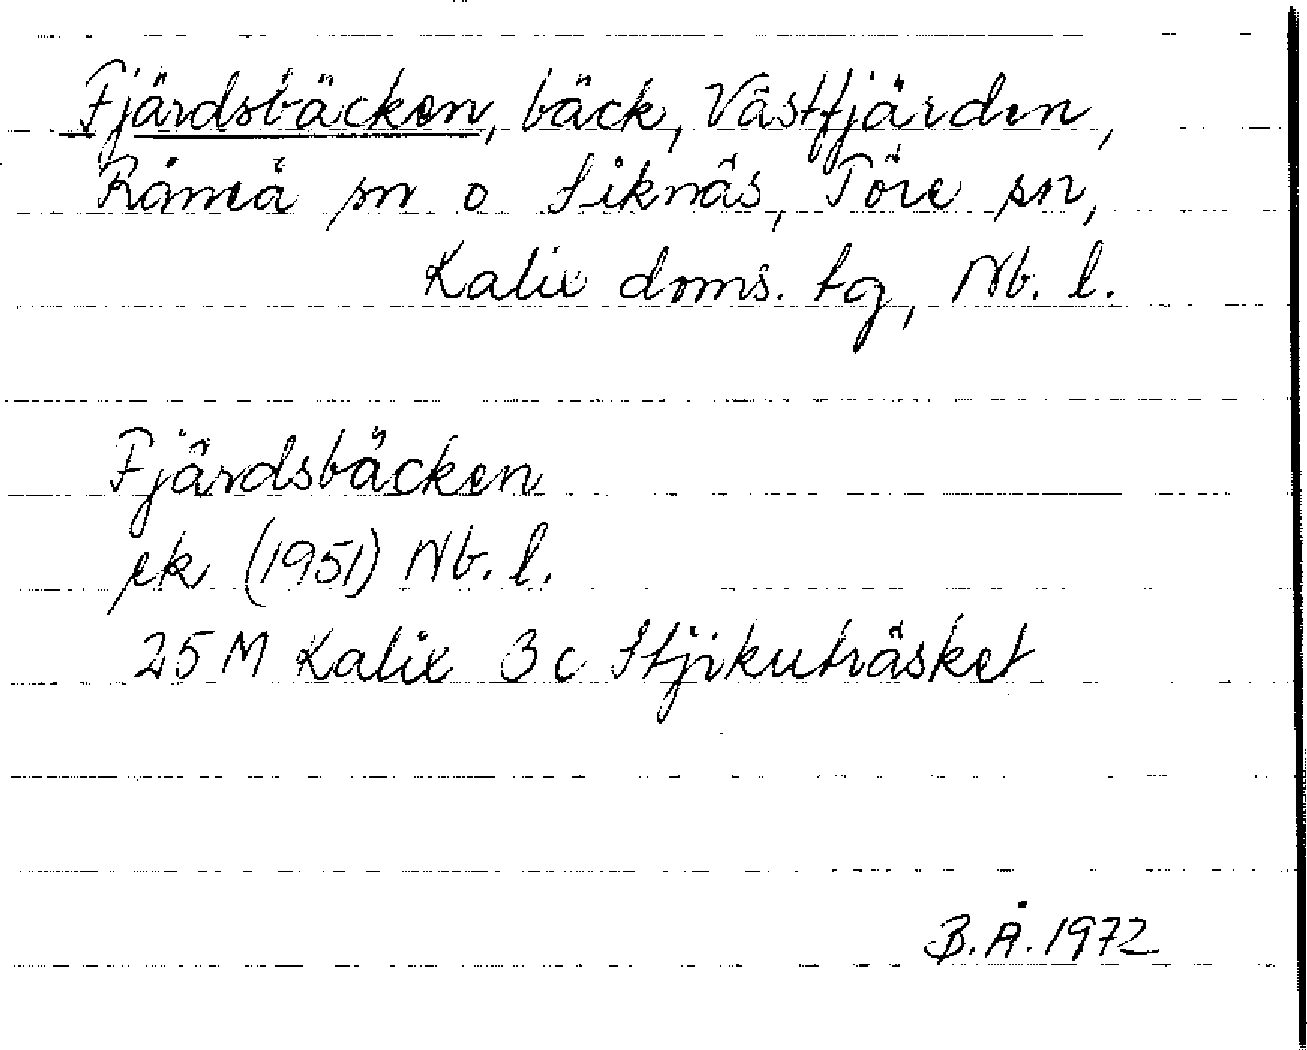 Fjärdsbäcken, bäck, Västfjärden,
Råneå sn o Siknäs, Töre sn,
Kalix doms. tg, Nb. l.
Fjärdsbäcken
ek (1951) Nb. l.
25 M Kalix 3c Stjikuträsket
B.Å. 1972